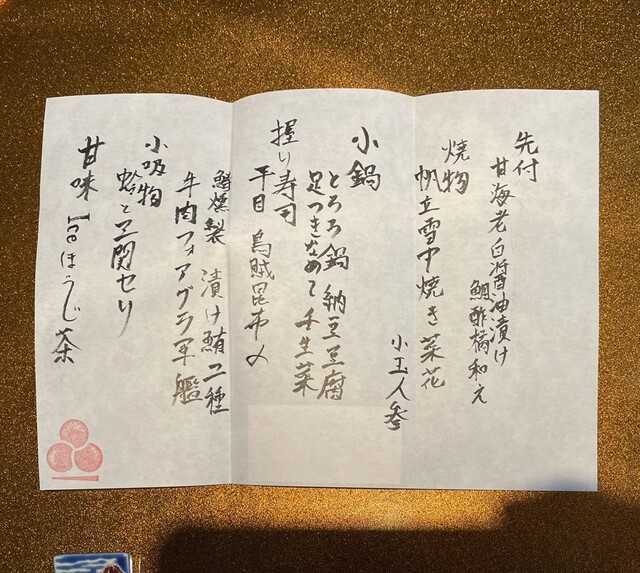 先付
甘海老白醤油漬け
鯛酢橘和え
焼物
帆立雪中焼き菜花
小玉人参
小鍋
とろろ鍋 納豆豆腐
足つきなめこ 壬生菜
握り寿司
平目 烏賊昆布〆
燻製 漬け鮪二種
牛肉フォアグラ軍艦
小吸物
蛤と三関セリ
甘味 Iceほうじ茶